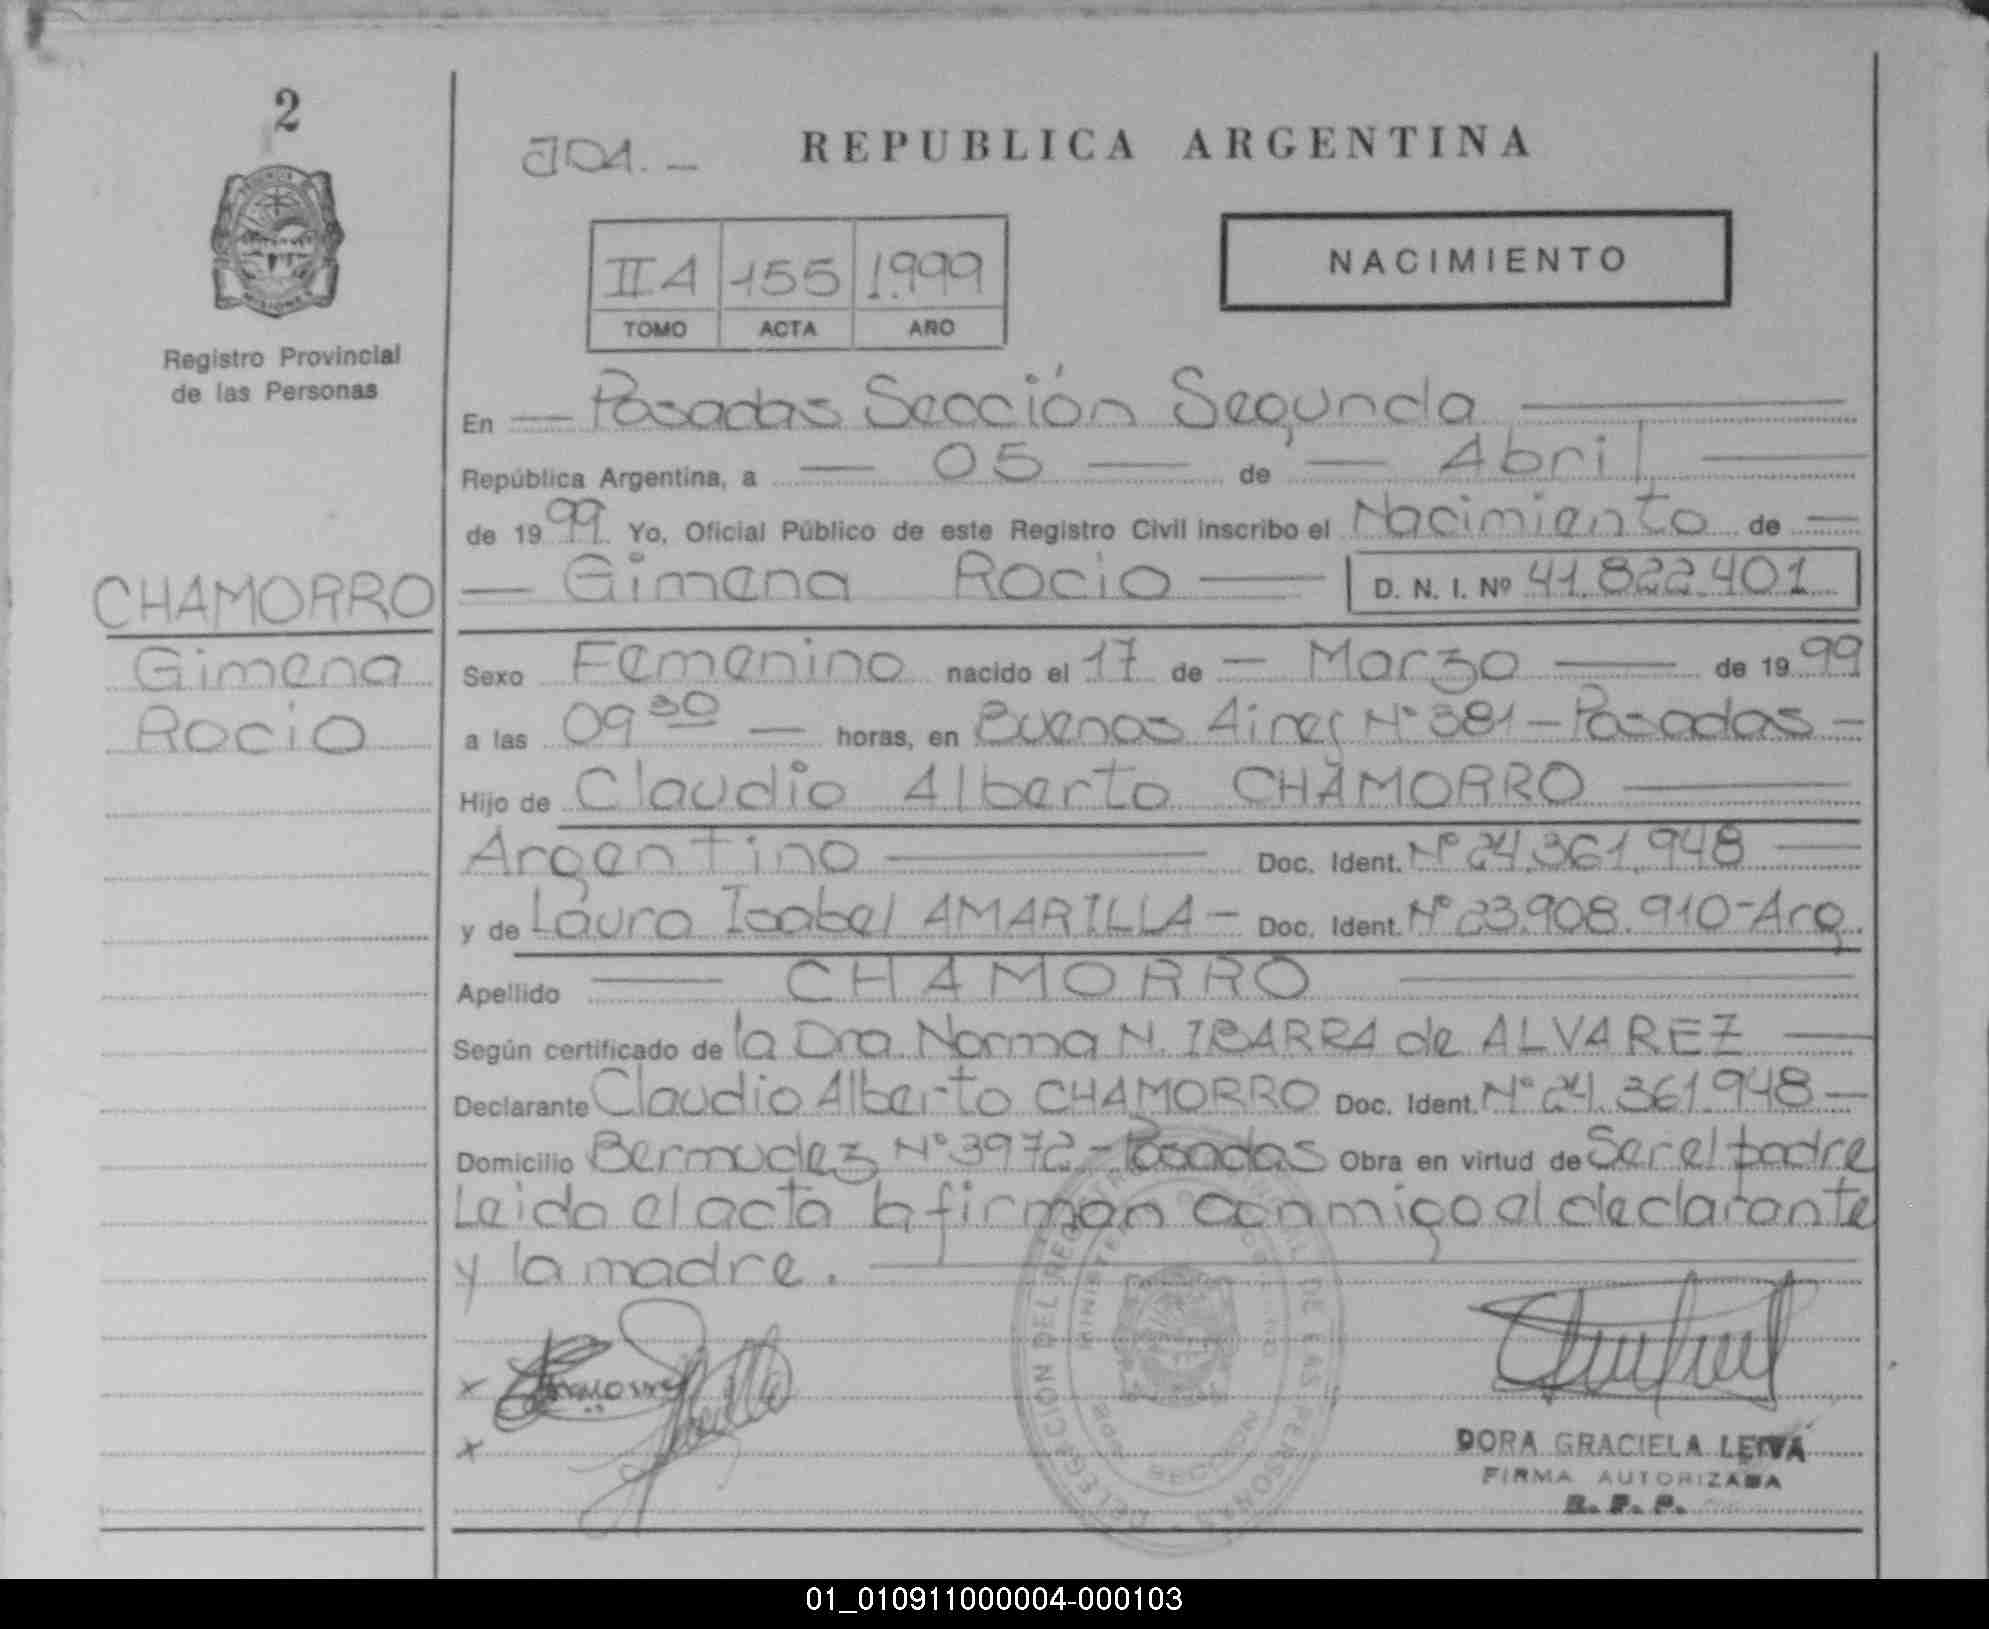 2
Registro Provincial
de las Personas
CHAMORRO
Gimena
Rocio
REPUBLICA ARGENTINA
NACIMIENTO
II A 155 1.999
TOMO ACTA AÑO
En — Posadas Sección Segunda —
República Argentina, a — 05 — de — Abril —
de 19 99 Yo, Oficial Público de este Registro Civil inscribo el Nacimiento de —
— Gimena Rocio — D. N. I. Nº 41.822.401
Sexo Femenino nacido el 17 de — Marzo — de 19 99
a las 09 30 — horas, en Buenos Aires Nº 381 - Posadas -
Hijo de Claudio Alberto CHAMORRO —
Argentino — Doc. Ident. Nº 24.361.948 —
y de Laura Isabel AMARILLA - Doc. Ident. Nº 23.908.910 - Arg.
Apellido — CHAMORRO —
Según certificado de la Dra. Norma N. IBARRA de ALVAREZ —
Declarante Claudio Alberto CHAMORRO Doc. Ident. Nº 24.361.948 —
Domicilio Bermudez Nº 3972 - Posadas Obra en virtud de Ser el padre
Leida el acta la firman conmigo el declarante
y la madre. —
x
x
DELEGACION DEL REGISTRO PROVINCIAL DE LAS PERSONAS
DORA GRACIELA LEIVA
FIRMA AUTORIZADA
R. P. P.
01_010911000004-000103